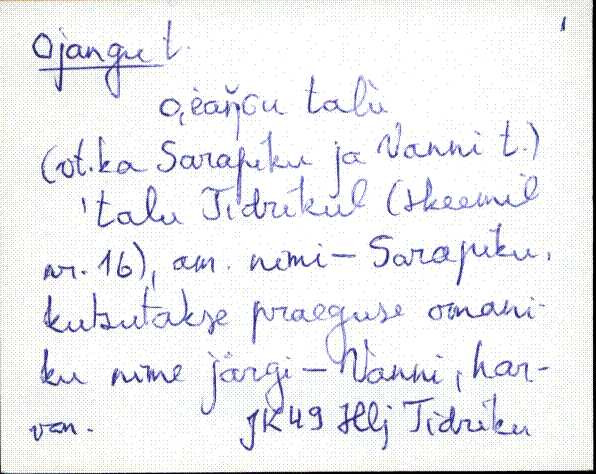 1
Ojangu t.
talù
(vt. ka Sarapiku ja Vanni t.)
'talu Tidrikül (skeemil
nr. 16), am. nimi – Sarapiku,
kutsutakse praeguse omani-
ku nime järgi – Vanni, har-
van. JK 49 Hlj Tidriku